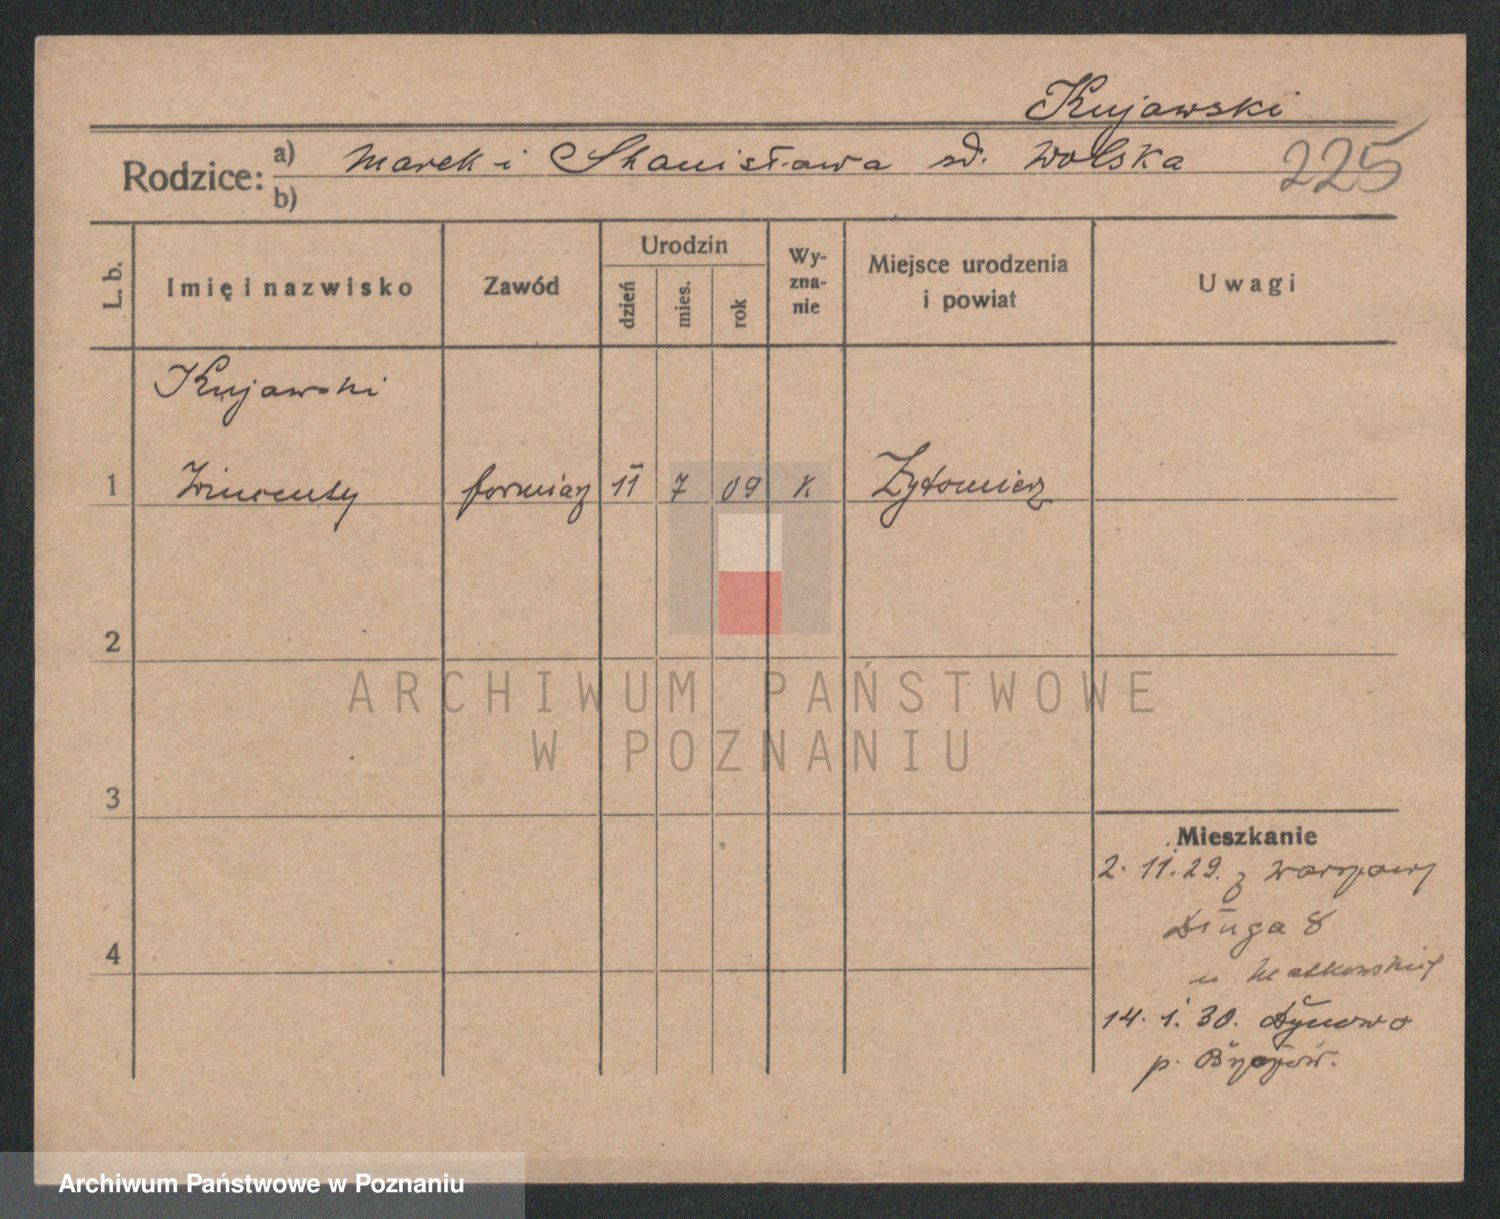 Kujawski
Rodzice: a) Marek i Stanisława zd. Wolska 225
b)
L. b. Imię i nazwisko Zawód Urodzin dzień mies. rok Wy-zna-nie Miejsce urodzenia i powiat Uwagi
Kujawski
1 Wincenty formiarz 11 7 09 K Żytomierz
2
ARCHIWUM PAŃSTWOWE
W POZNANIU
3
Mieszkanie
2. 11. 29. z Warszawy
Długa 8
4
u Małkowskiej
14. 1. 30. Dynowo
p.
Archiwum Państwowe w Poznaniu